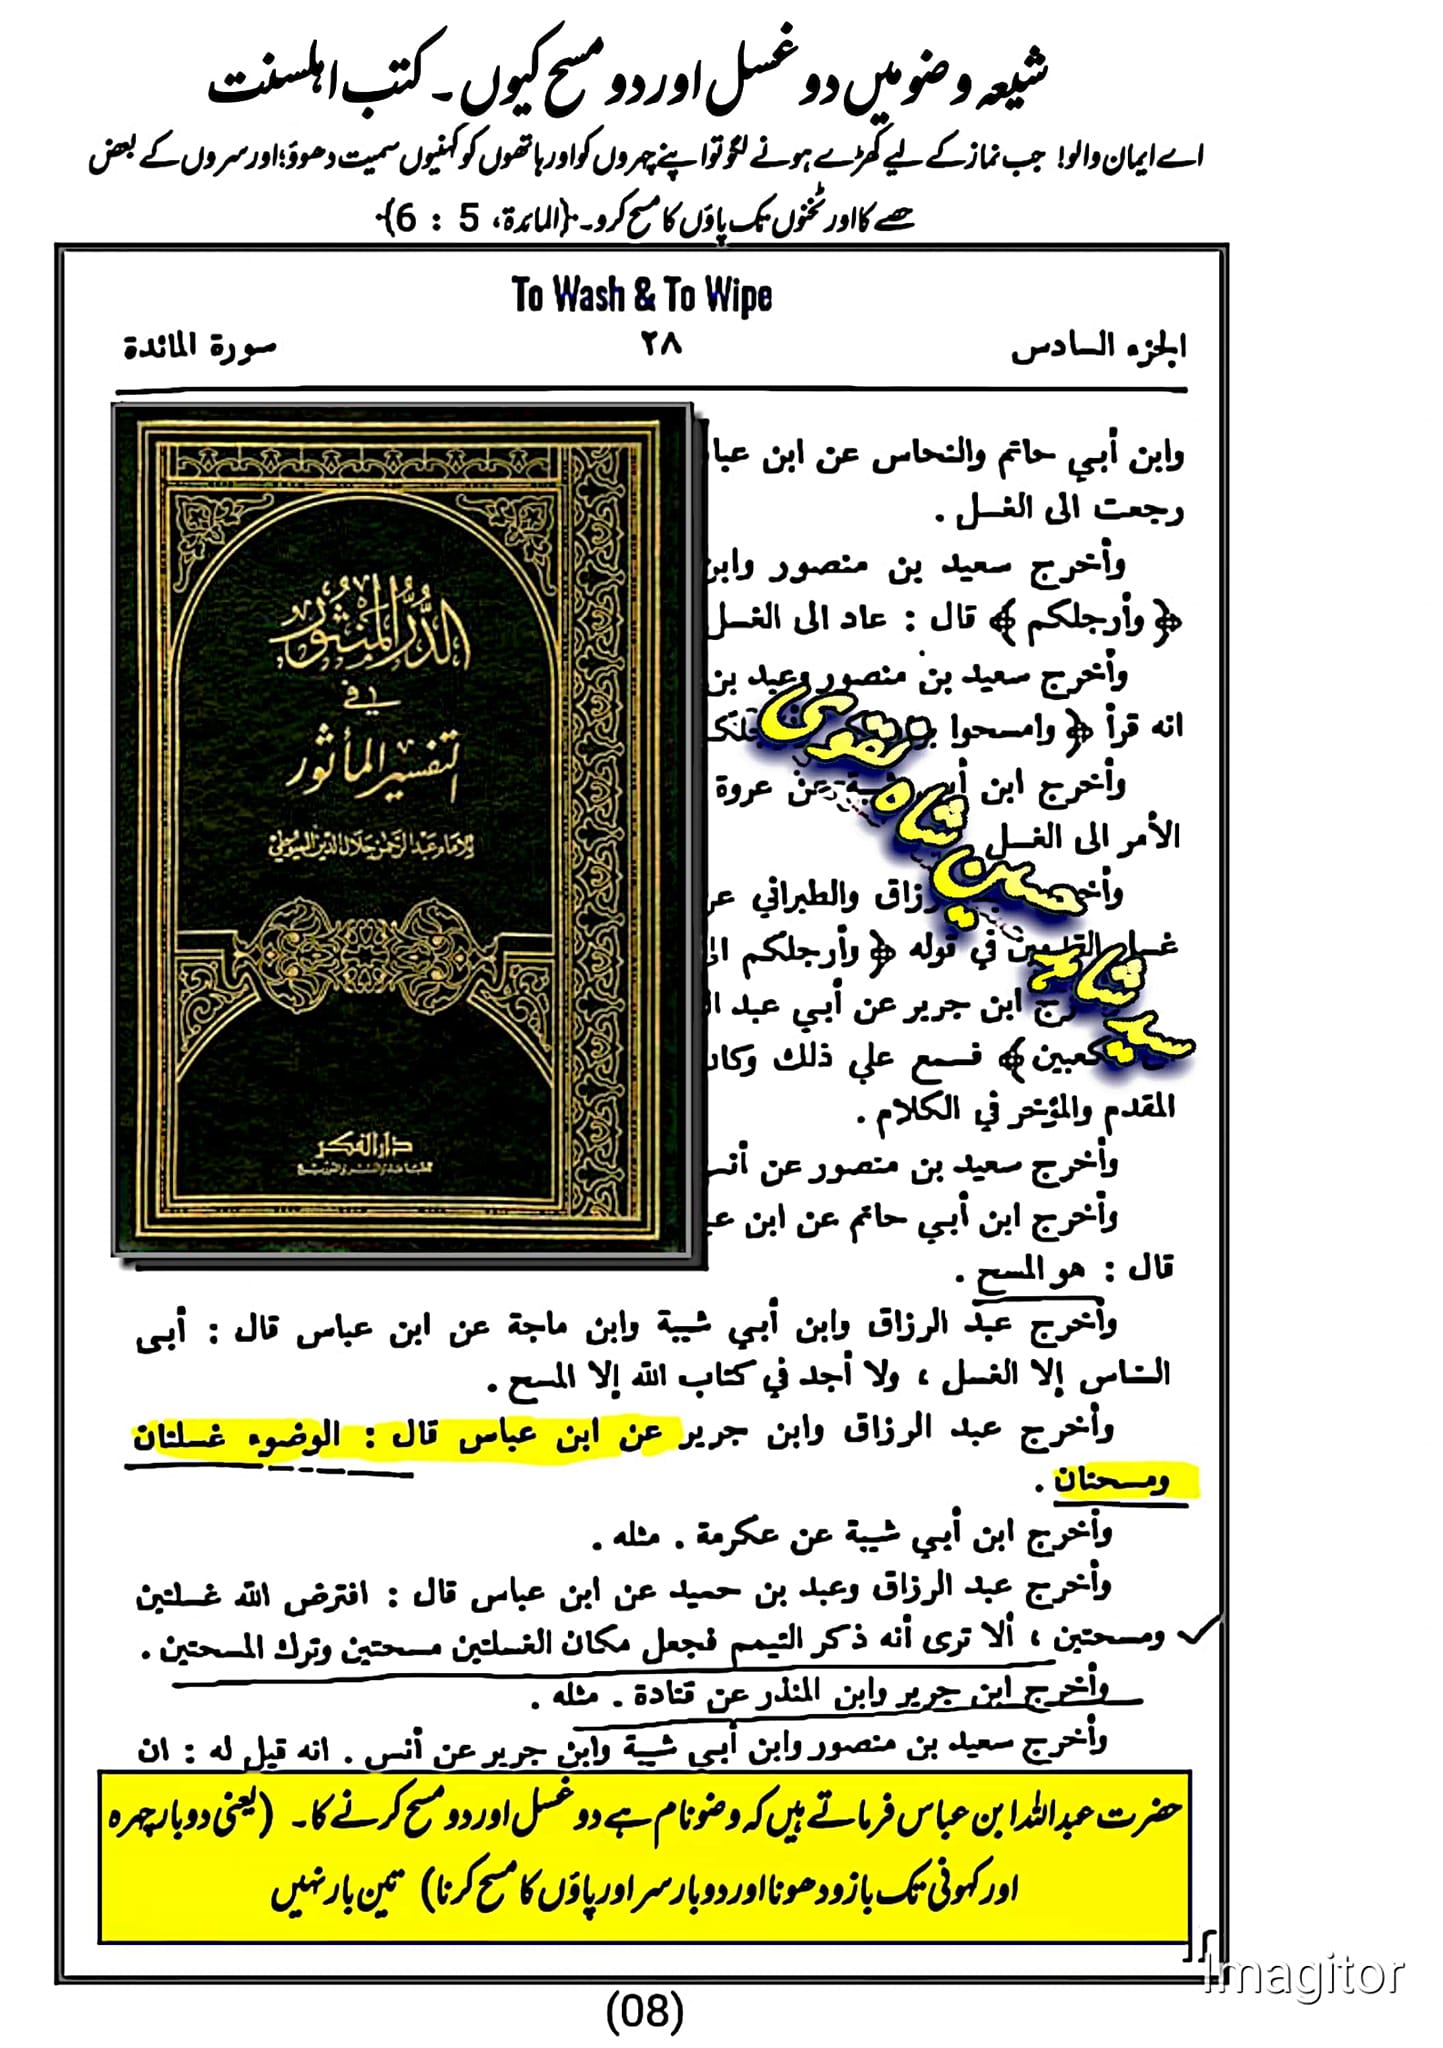 شیعہ وضو میں دو غسل اور دو مسح کیوں۔ کتب اہلسنت
اے ایمان والو! جب نماز کے لیے کھڑے ہونے لگو تو اپنے چہروں کو اور ہاتھوں کو کہنیوں سمیت دھوؤ؛ اور سروں کے بعض
حصے کا اور ٹخنوں تک پاؤں کا مسح کرو۔ {المائدة، 5 : 6}
To Wash & To Wipe
الجزء السادس ٢٨ سورة المائدة
وابن أبي حاتم والنحاس عن ابن عبا
رجعت الى الغسل .
وأخرج سعيد بن منصور وابن
﴿ وأرجلكم ﴾ قال : عاد الى الغسل
وأخرج سعيد بن منصور وعبد بن
انه قرأ ﴿ وامسحوا
وأخرج ابن أبي شيبة عن عروة
الأمر الى الغسل
رزاق والطبراني عن
غسل القدمين في قوله ﴿ وأرجلكم الى
ابن جرير عن أبي عبد ال
كعبين ﴾ فسمع علي ذلك وكان
المقدم والمؤخر في الكلام .
وأخرج سعيد بن منصور عن أنس
وأخرج ابن أبي حاتم عن ابن عبا
قال : هو المسح .
وأخرج عبد الرزاق وابن أبي شيبة وابن ماجة عن ابن عباس قال : أبى
الناس إلا الغسل ، ولا أجد في كتاب الله إلا المسح .
وأخرج عبد الرزاق وابن جرير عن ابن عباس قال : الوضوء غسلتان
ومسحتان .
وأخرج ابن أبي شيبة عن عكرمة . مثله .
وأخرج عبد الرزاق وعبد بن حميد عن ابن عباس قال : افترض الله غسلتين
ومسحتين ، ألا ترى أنه ذكر التيمم فجعل مكان الغسلتين مسحتين وترك المسحتين .
وأخرج ابن جرير وابن المنذر عن قتادة . مثله .
وأخرج سعيد بن منصور وابن أبي شيبة وابن جرير عن أنس . انه قيل له : ان
الدر المنثور
في
التفسير المأثور
للإمام عبد الرحمن جلال الدين السيوطي
دار الفكر
للطباعة والنشر والتوزيع
سید شاہد حسین شاہ نقوی
حضرت عبداللہ ابن عباس فرماتے ہیں کہ وضو نام ہے دو غسل اور دو مسح کرنے کا۔ (یعنی دو بار چہرہ
اور کہونی تک بازو دھونا اور دو بار سر اور پاؤں کا مسح کرنا) تین بار نہیں
Imagitor
(08)